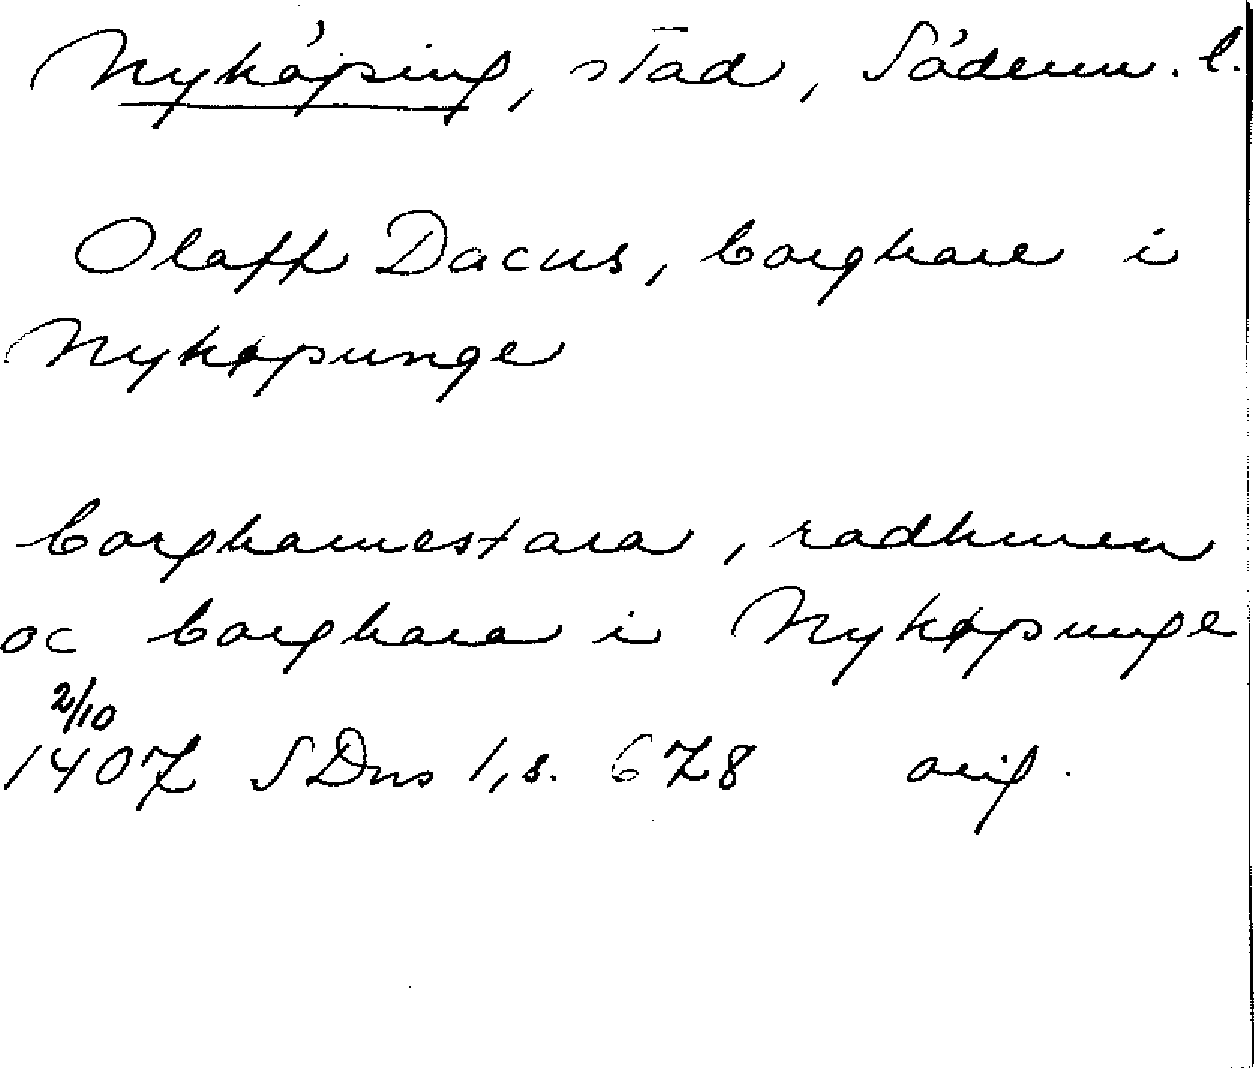 Nyköping, stad, Söderm. l.
Olaff Dacus, borghare i
Nykøpunge
borghamestara, radhmen
oc borghara i Nykøpunge
2/10
1407 SDns 1, s. 678 orig.